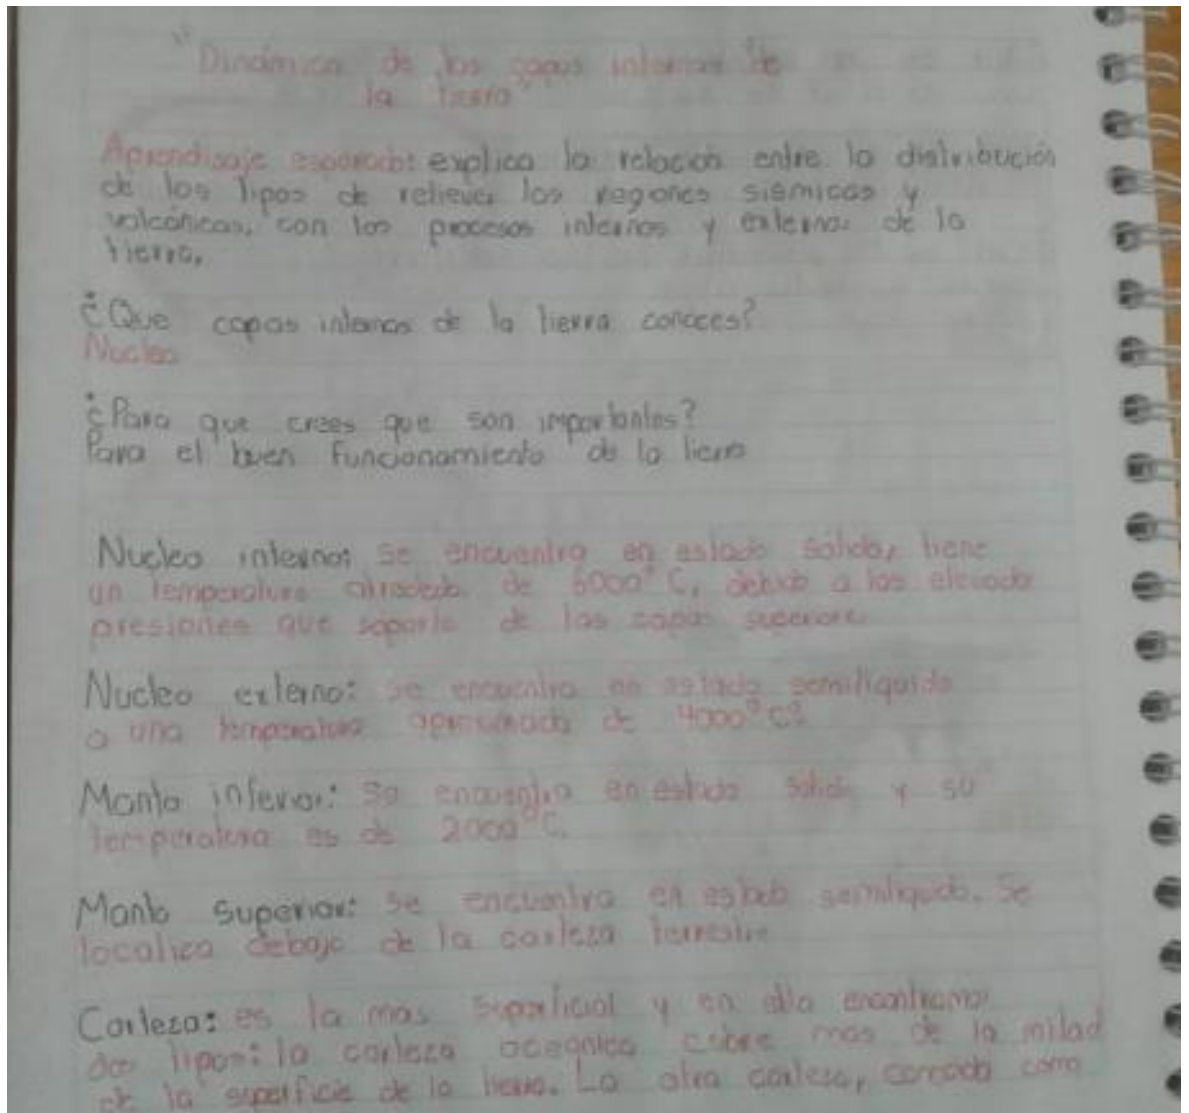 "Dinámica de las capas internas de
la tierra"
Aprendisaje esperado: explica la relación entre la distribución
de los tipos de relieve, los regiones sismicas y
volcánicas, con los procesos internos y externos de la
tierra,
¿Que capas internas de la tierra conoces?
Nucleo
¿Para que crees que son importantes?
Para el buen funcionamiento de la tierra
Nucleo interno: se encuentra en estado sólido, tiene
un temperatura alrededo. de 6000° C, debido a las elevada
presiones que soporta de las capas superiore
Nucleo externo: se encuentra en estado semiliquido
a una temperatura aproximada de 4000°C
Manto inferior: se encuentra en estado solido y su
temperatura es de 2000°C.
Manto superior: se encuentra en estado semiliquido. Se
localiza debajo de la corteza terrestre
Corteza: es la mas superficial y en ella encontramos
dos tipos: la corteza oceanica cubre mas de la mitad
de la superficie de la tierra. La otra corteza, conocida como